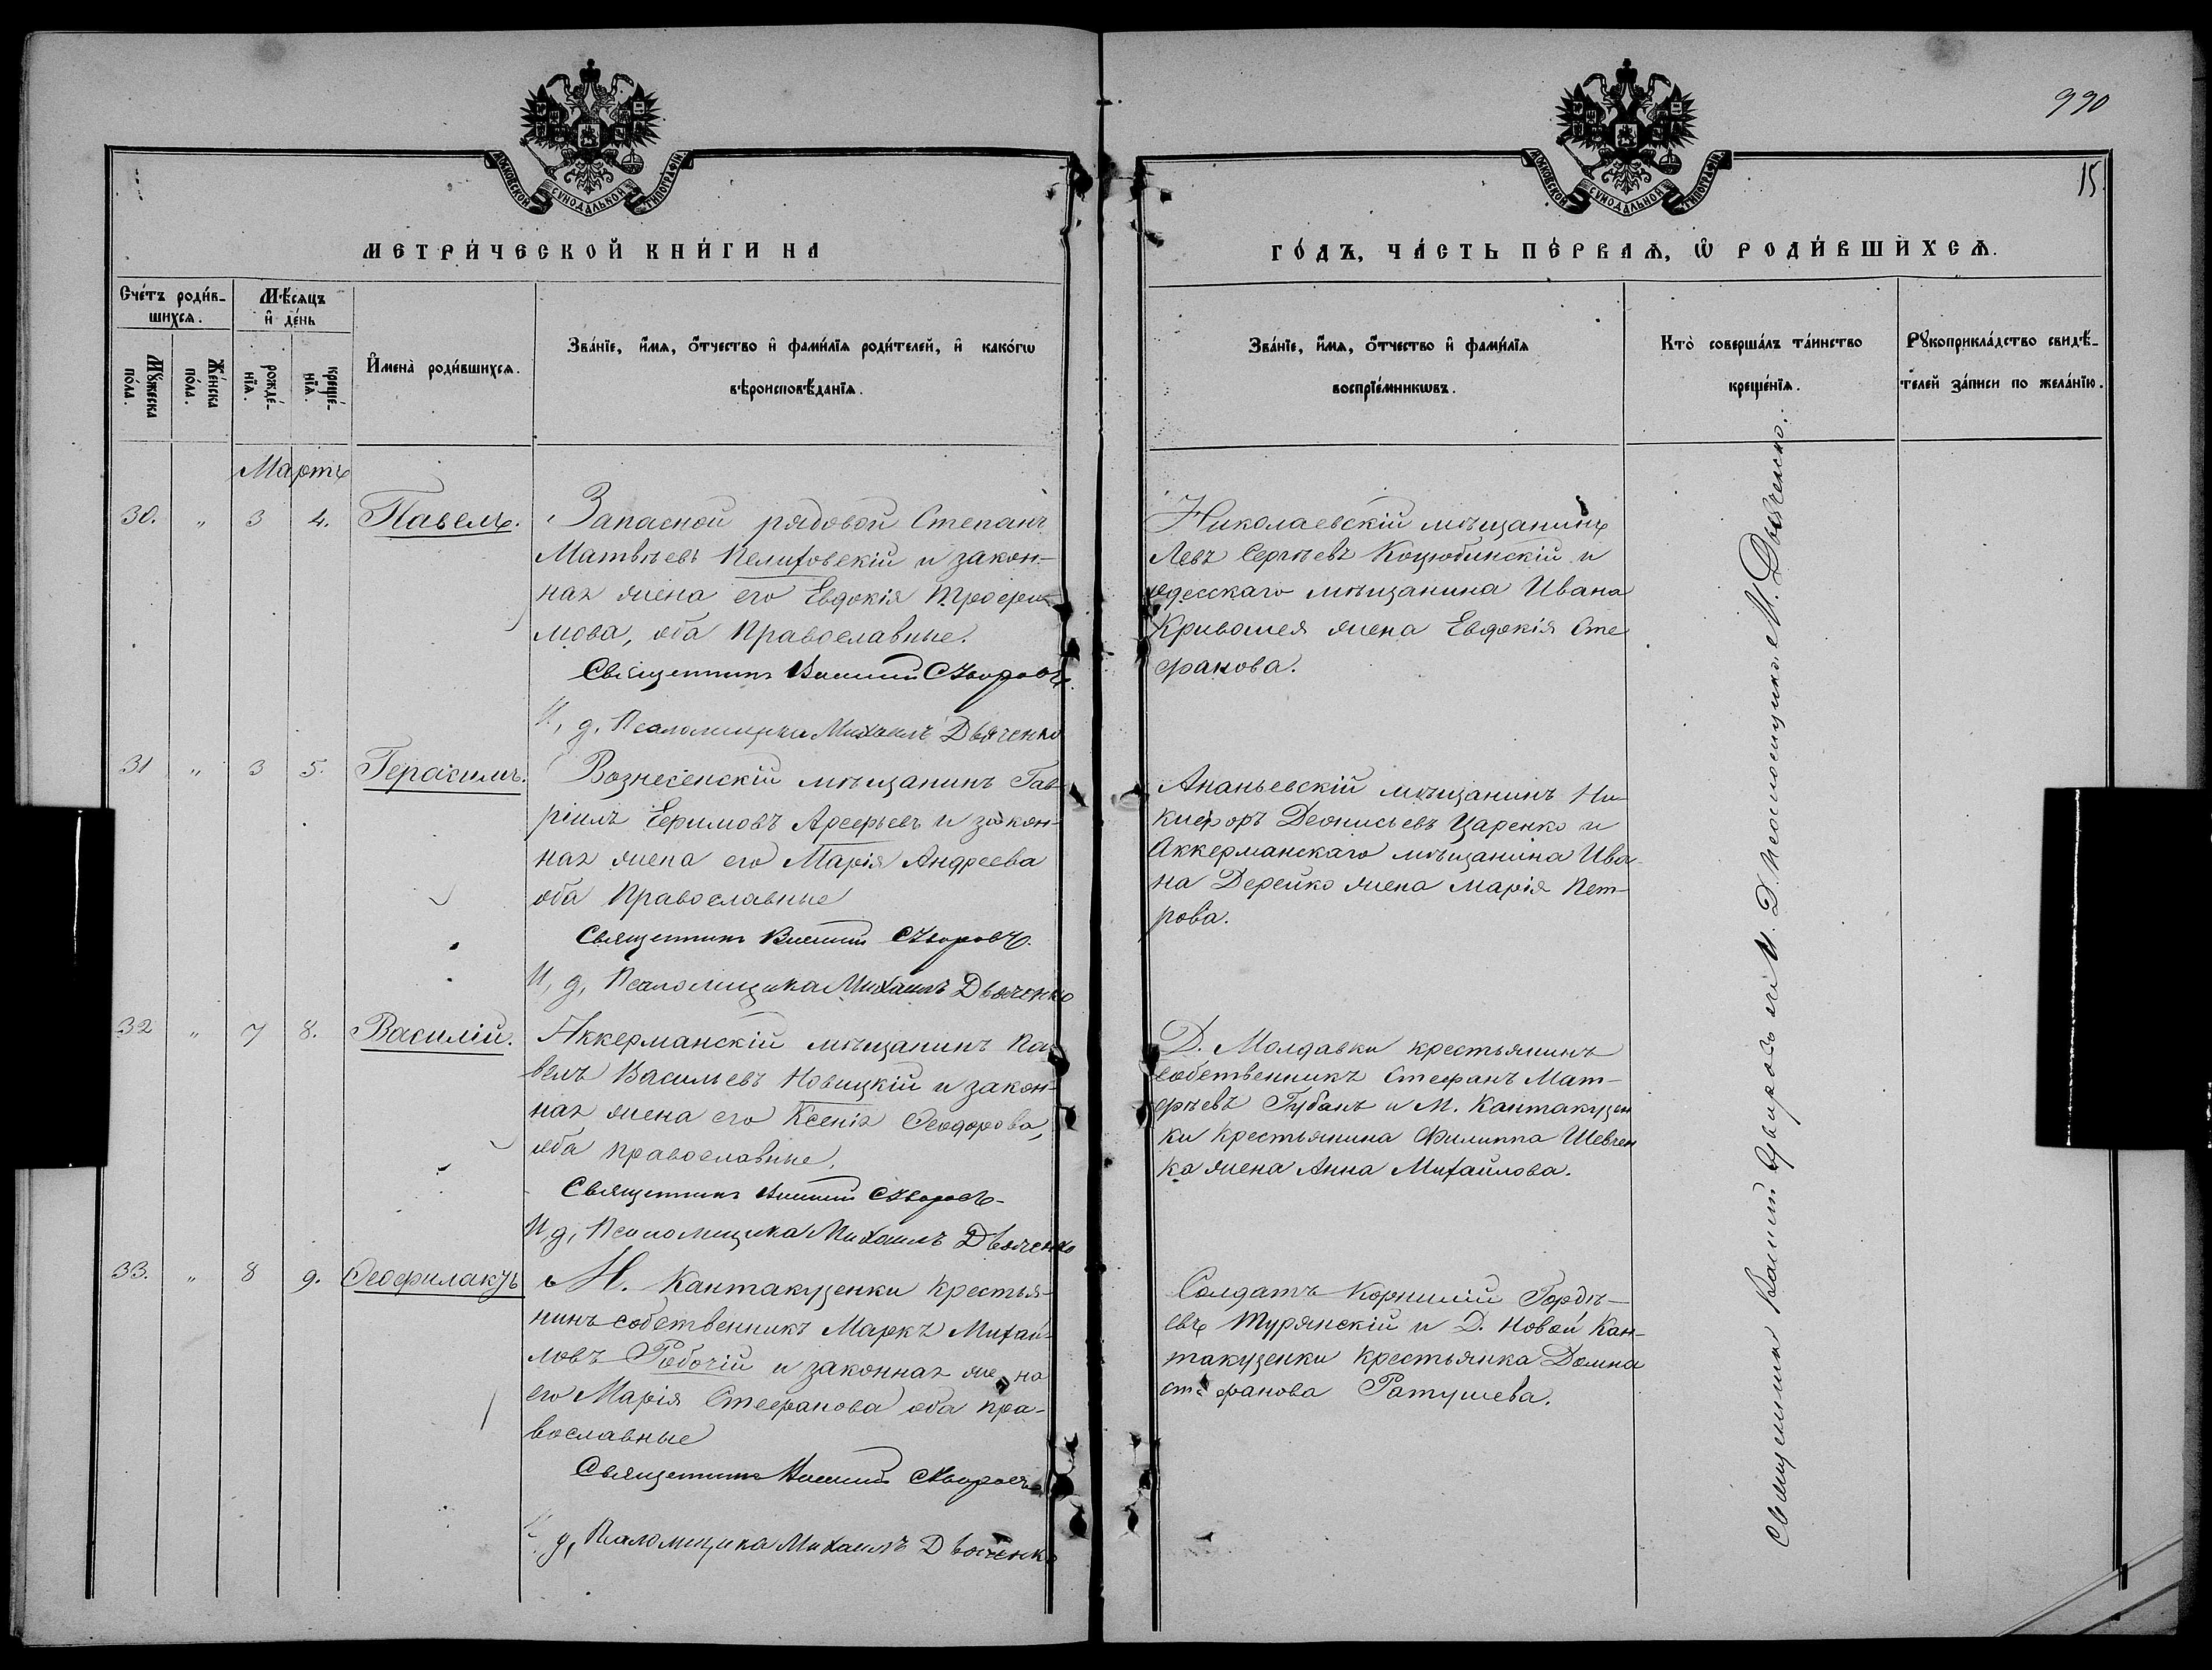 990
15.
МОСКОВСКОЙ СѴНОДАЛЬНОЙ ТИПОГРАФІИ
МОСКОВСКОЙ СѴНОДАЛЬНОЙ ТИПОГРАФІИ
МЕТРИ́ЧЕСКОЙ КНИ́ГИ НА
ГО́ДЪ, ЧА́СТЬ ПЕ́РВАѦ, Ѡ РОДИ́ВШИХСѦ.
Сче́тъ роди́в-
шихсѧ.
Мѣ́сѧцъ
и де́нь
Мꙋ́жеска по́ла.
Же́нска по́ла.
рожде́-
нїѧ.
креще́-
нїѧ.
Имена̀ роди́вшихсѧ.
Зва́нїе, и́мѧ, о́тчество и фами́лїѧ роди́телей, и како́гѡ
вѣроисповѣ́данїѧ.
Зва́нїе, и́мѧ, о́тчество и фами́лїѧ
воспрїе́мникѡвъ.
Кто̀ соверша́лъ та́инство
креще́нїѧ.
Рꙋкоприкла́дство свидѣ́-
телей за́писи по жела́нїю.
Мартъ
30. " 3 4. Павелъ.
Запасной рядовой Степанъ
Матвѣевъ Пелиховскій и закон-
ная жена его Евдокія Трофи-
мова, оба Православные.
Священникъ Василій Скворовъ
И, д, Псаломщика Михаилъ Дьяченко
Николаевскій мѣщанинъ
Левъ Сергѣевъ Коцюбинскій и
одесскаго мѣщанина Ивана
Кривошея жена Евдокія Сте
фанова.
31 " 3 5. Герасимъ.
Вознесенскій мѣщанинъ Гав-
ріилъ Ефимовъ Арефьевъ и закон-
ная жена его Марія Андреева
оба Православные
Священникъ Василій Скворовъ.
И, д, Псаломщика Михаилъ Дьяченко
Ананьевскій мѣщанинъ Ни-
кифоръ Деонисьевъ Царенко и
Аккерманскаго мѣщанина Ива-
на Дерейко жена Марія Пет-
рова.
32 " 7 8. Василій.
Аккерманскій мѣщанинъ Па-
велъ Васильевъ Новицкій и закон-
ная жена его Ксенія Ѳеодорова,
оба православные,
Священникъ Василій Скворовъ
И, д, Псаломщика Михаилъ Дьяченко
Д. Молдавки крестьянинъ
собственникъ Стефанъ Мат-
фѣевъ Губанъ и М. Кантакузен
ки крестьянина Филиппа Шевчен
ка жена Анна Михайлова.
33. " 8 9. Ѳеофилактъ
М. Кантакузенки крестья-
нинъ собственникъ Маркъ Михай-
ловъ Рабочій и законная жена
его Марія Стефанова оба пра-
вославные
Священникъ Василій Скворовъ
И. д, Псаломщика Михаилъ Дьяченко
Солдатъ Корнилій Гордѣ-
евъ Турянскій и Д. Новой Кан-
такузенки крестьянка Домна
Стефанова Ратушева.
Священникъ Василій Скворовъ съ И. Д. Псаломщика М. Дьяченко.